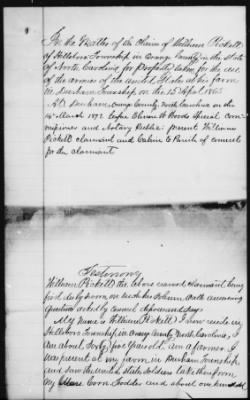 In the Matter of the Claim of William Pickett
of Hillsboro Township in Orange County in the State
of North Carolina for Property taken for the use
of the armies of the United States at his farm
in Durham Township on the 15 April 1865
At Durham Orange County North Carolina on the
14th March 1872 before Oliver Woods Special Com-
missioner and Notary Public present William
Pickett claimant and Calvin E Parish of Counsel
for the claimant
Testimony
William Pickett the above named claimant being
first duly sworn on
questions asked by counsel deposes and says
My name is William Pickett I now reside in
Hillsboro Township in Orange County North Carolina, I
am about forty five years old. am a farmer. I
was present at my farm in Durham Township
and saw the United States Soldiers take them from
my Corn Fodder and about one hundred